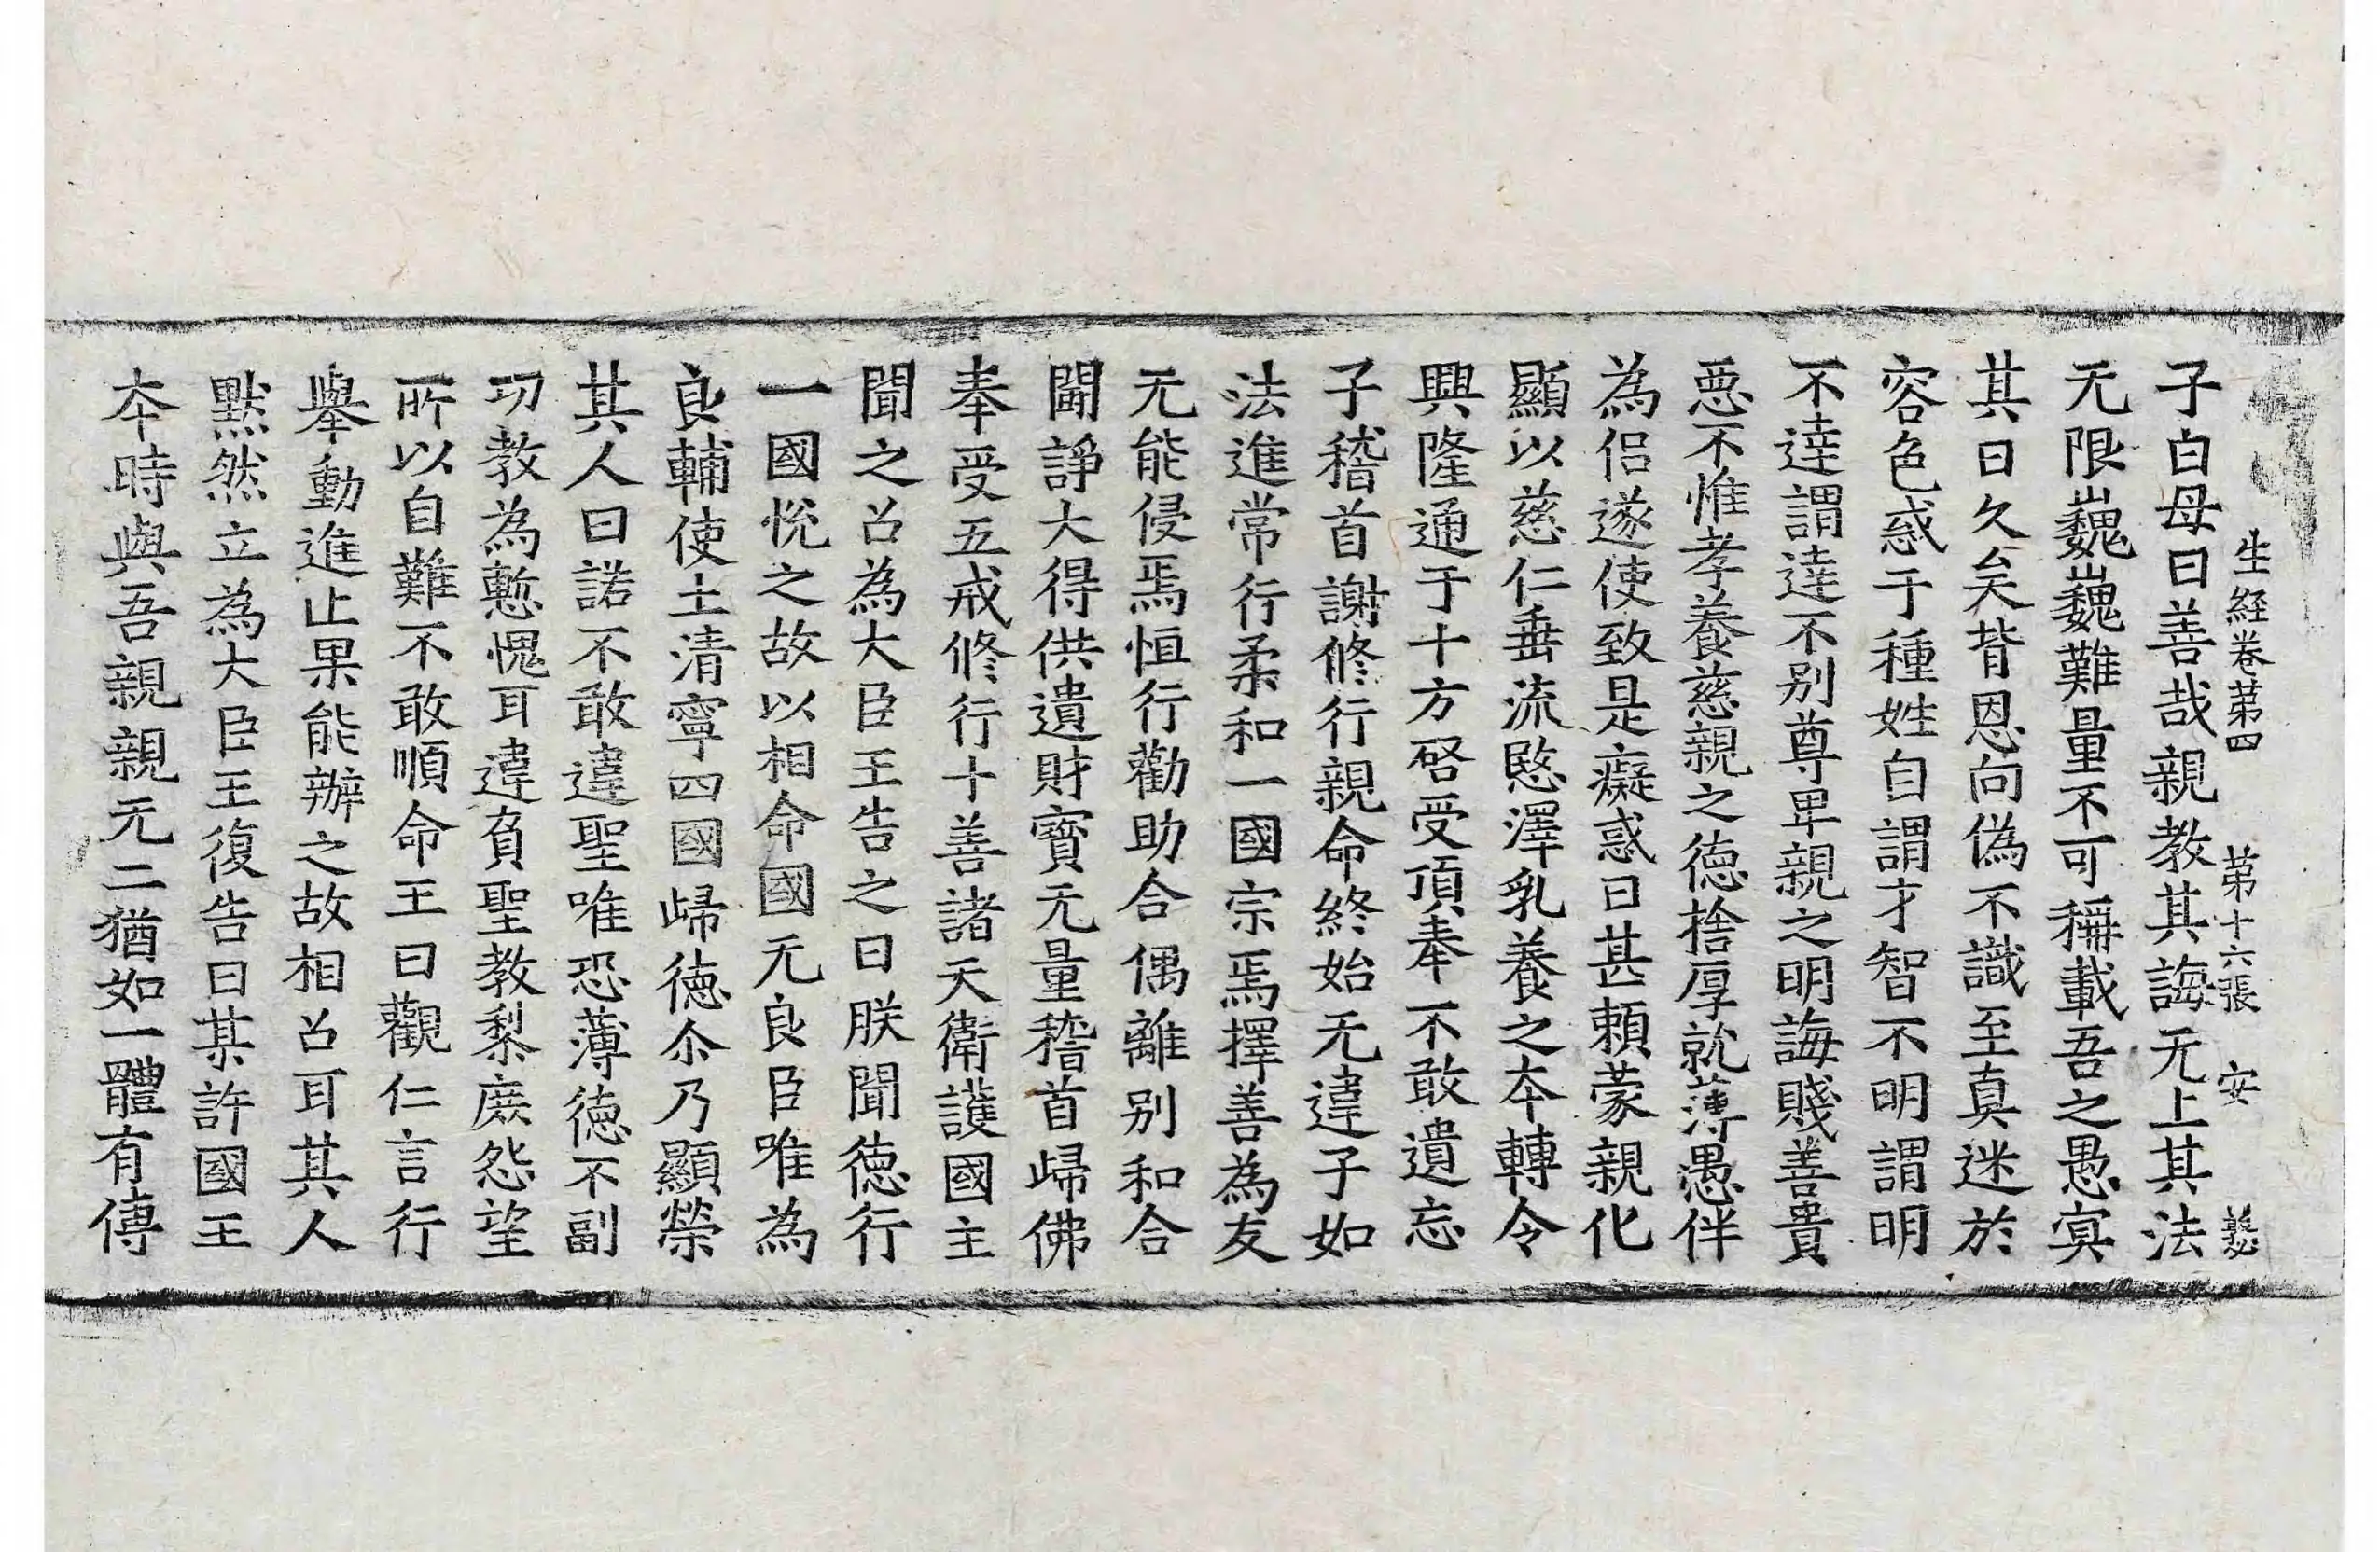 生經卷第四　第十六張　安
子白母曰善哉親教其誨无上其法
无限巍巍難量不可稱載吾之愚㝠
其日久矣背恩向偽不識至真迷於
容色惑于種姓自謂才智不明謂明
不達謂達不別尊卑親之明誨賤善貴
惡不惟孝養慈親之德捨厚就薄愚伴
為侶遂使致是癡惑曰甚賴蒙親化
顯以慈仁垂流愍澤乳養之本轉令
興隆通于十方啓受頂奉不敢遺忘
子稽首謝修行親命終始无違子如
法進常行柔和一國宗焉擇善為友
无能侵焉恒行勸助合偶離別和合
鬪諍大得供遺財寶无量稽首歸佛
奉受五戒修行十善諸天衛護國主
聞之召為大臣王告之曰朕聞德行
一國悅之故以相命國无良臣唯為
良輔使土清寧四國歸德尒乃顯榮
其人曰諾不敢違聖唯恐薄德不副
功教為慙愧耳違負聖教黎庶怨望
所以自難不敢順命王曰觀仁言行
舉動進止果能辦之故相召耳其人
黙然立為大臣王復告曰某許國王
本時與吾親親无二猶如一體有傳